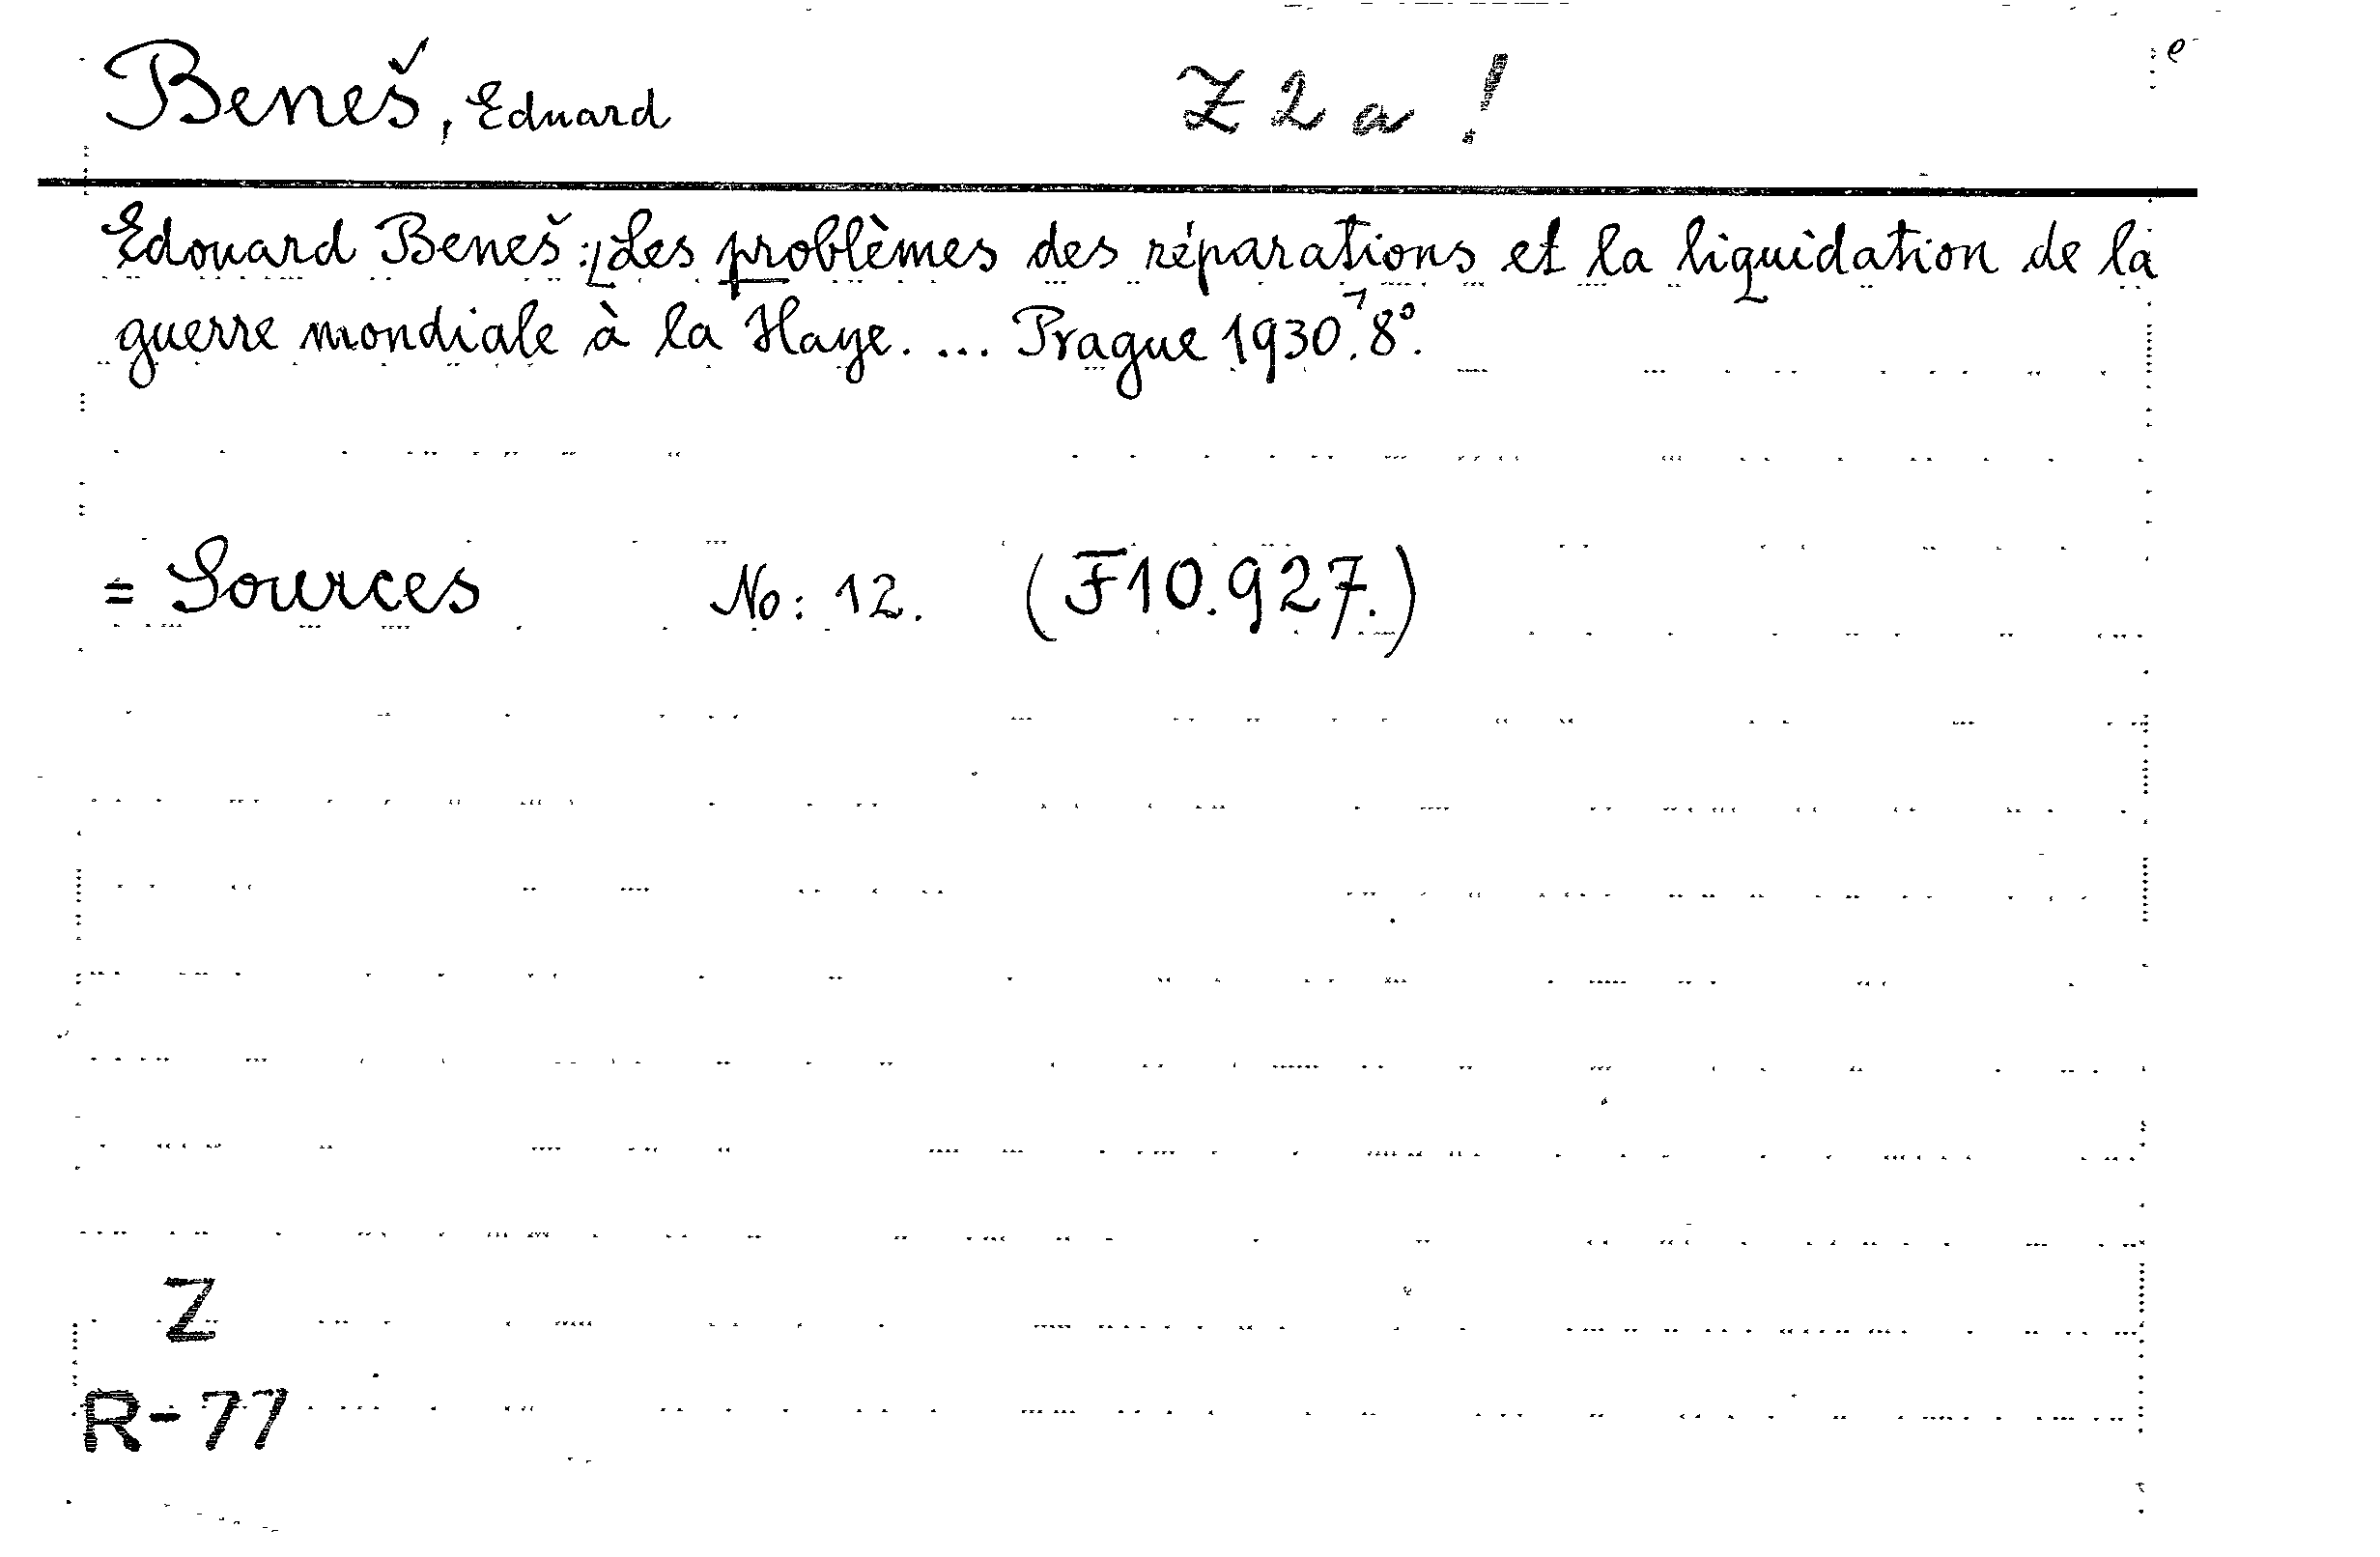 Beneš, Eduard Z 2 a !
Edouard Beneš: [Les problèmes des réparations et la liquidation de la
guerre mondiale à la Haye. ... Prague 1930.] 8°.
= Sources No: 12. (F10.927.)
Z
R-77